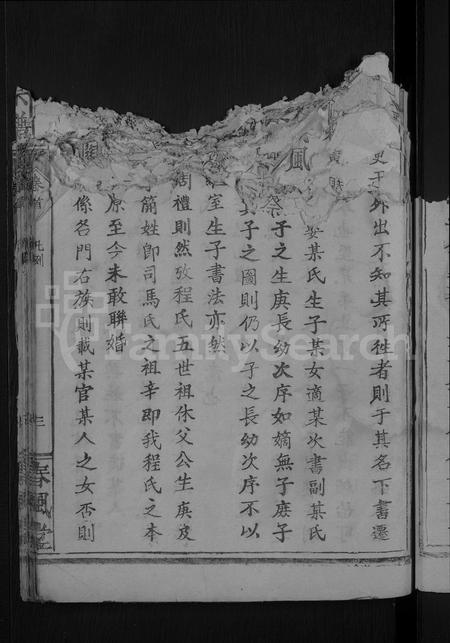 外出不知其所徃者則于其名下書遷
娶某氏生子某女適某次書副某氏
子之生庚長幼次序如嫡無子庶子
子之圖則仍以子之長幼次序不以
室生子書法亦然
周禮則然攷程氏五世祖休父公生庚及
簡姓卽司馬氏之祖辛即我程氏之本
原至今未敢聯婚
係名門右族則載某官某人之女否則
卷首
三
春風堂
FamilySearch